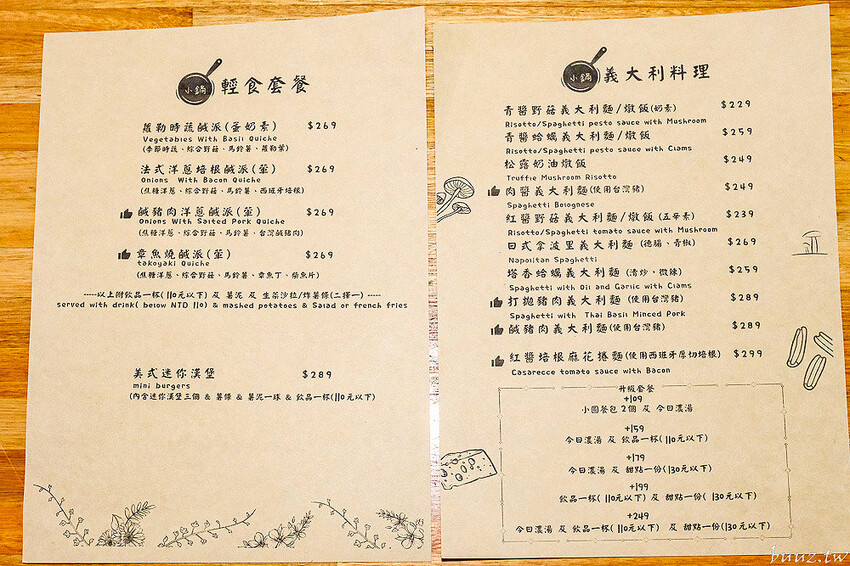 小鍋 輕食套餐
蘿勒時蔬鹹派(蛋奶素) $269
Vegetables With Basil Quiche
(季節時蔬、綜合野菇、馬鈴薯、蘿勒葉)
法式洋蔥培根鹹派(葷) $269
Onions With Bacon Quiche
(焦糖洋蔥、綜合野菇、馬鈴薯、西班牙培根)
鹹豬肉洋蔥鹹派(葷) $269
Onions With Salted Pork Quiche
(焦糖洋蔥、綜合野菇、馬鈴薯、台灣鹹豬肉)
章魚燒鹹派(葷) $269
takoyaki Quiche
(焦糖洋蔥、綜合野菇、馬鈴薯、章魚丁、柴魚片)
-----以上附飲品一杯(110元以下) 及 薯泥 及 生菜沙拉/炸薯條(二擇一) -----
served with drink( below NTD 110) & mashed potatoes & Salad or french fries
美式迷你漢堡 $289
mini burgers
(內含迷你漢堡三個 & 薯條 & 薯泥一球 & 飲品一杯(110元以下)
小鍋 義大利料理
青醬野菇義大利麵/燉飯(奶素) $229
Risotto/Spaghetti pesto sauce with Mushroom
青醬蛤蠣義大利麵/燉飯 $259
Risotto/Spaghetti pesto sauce with Clams
松露奶油燉飯 $249
Truffle Mushroom Risotto
肉醬義大利麵(使用台灣豬) $249
Spaghetti Bolognese
紅醬野菇義大利麵/燉飯 (五辛素) $239
Risotto/Spaghetti tomato sauce with Mushroom
日式拿波里義大利麵 (德腸、青椒) $269
Napolitan Spaghetti
塔香蛤蠣義大利麵 (清炒，微辣) $259
Spaghetti with Oil and Garlic with Clams
打拋豬肉義大利麵 (使用台灣豬) $289
Spaghetti with Thai Basil Minced Pork
鹹豬肉義大利麵 (使用台灣豬) $289
紅醬培根麻花捲麵(使用西班牙厚切培根) $299
Casarecce tomato sauce with Bacon
升級套餐
+109
小圓餐包 2個 及 今日濃湯
+159
今日濃湯 及 飲品一杯(110元以下)
+179
今日濃湯 及 甜點一份(130元以下)
+199
飲品一杯(110元以下) 及 甜點一份( 130元以下)
+249
今日濃湯 及 飲品一杯(110元以下) 及 甜點一份(130元以下)
buuz.tw